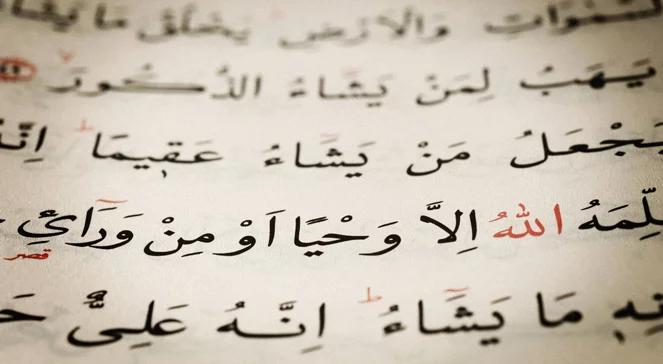 السَّمٰوَاتِ وَالْاَرْضِ يَخْلُقُ مَا يَشَاءُ
يَهَبُ لِمَنْ يَشَاءُ الذُّكُورَ
يَجْعَلُ مَنْ يَشَاءُ عَقِيمًا اِنَّهُ
لِّمَهُ اللّٰهُ اِلَّا وَحْيًا اَوْ مِنْ وَرَائِ
قصر
نِهِ مَا يَشَاءُ اِنَّهُ عَلِىٌّ حَ